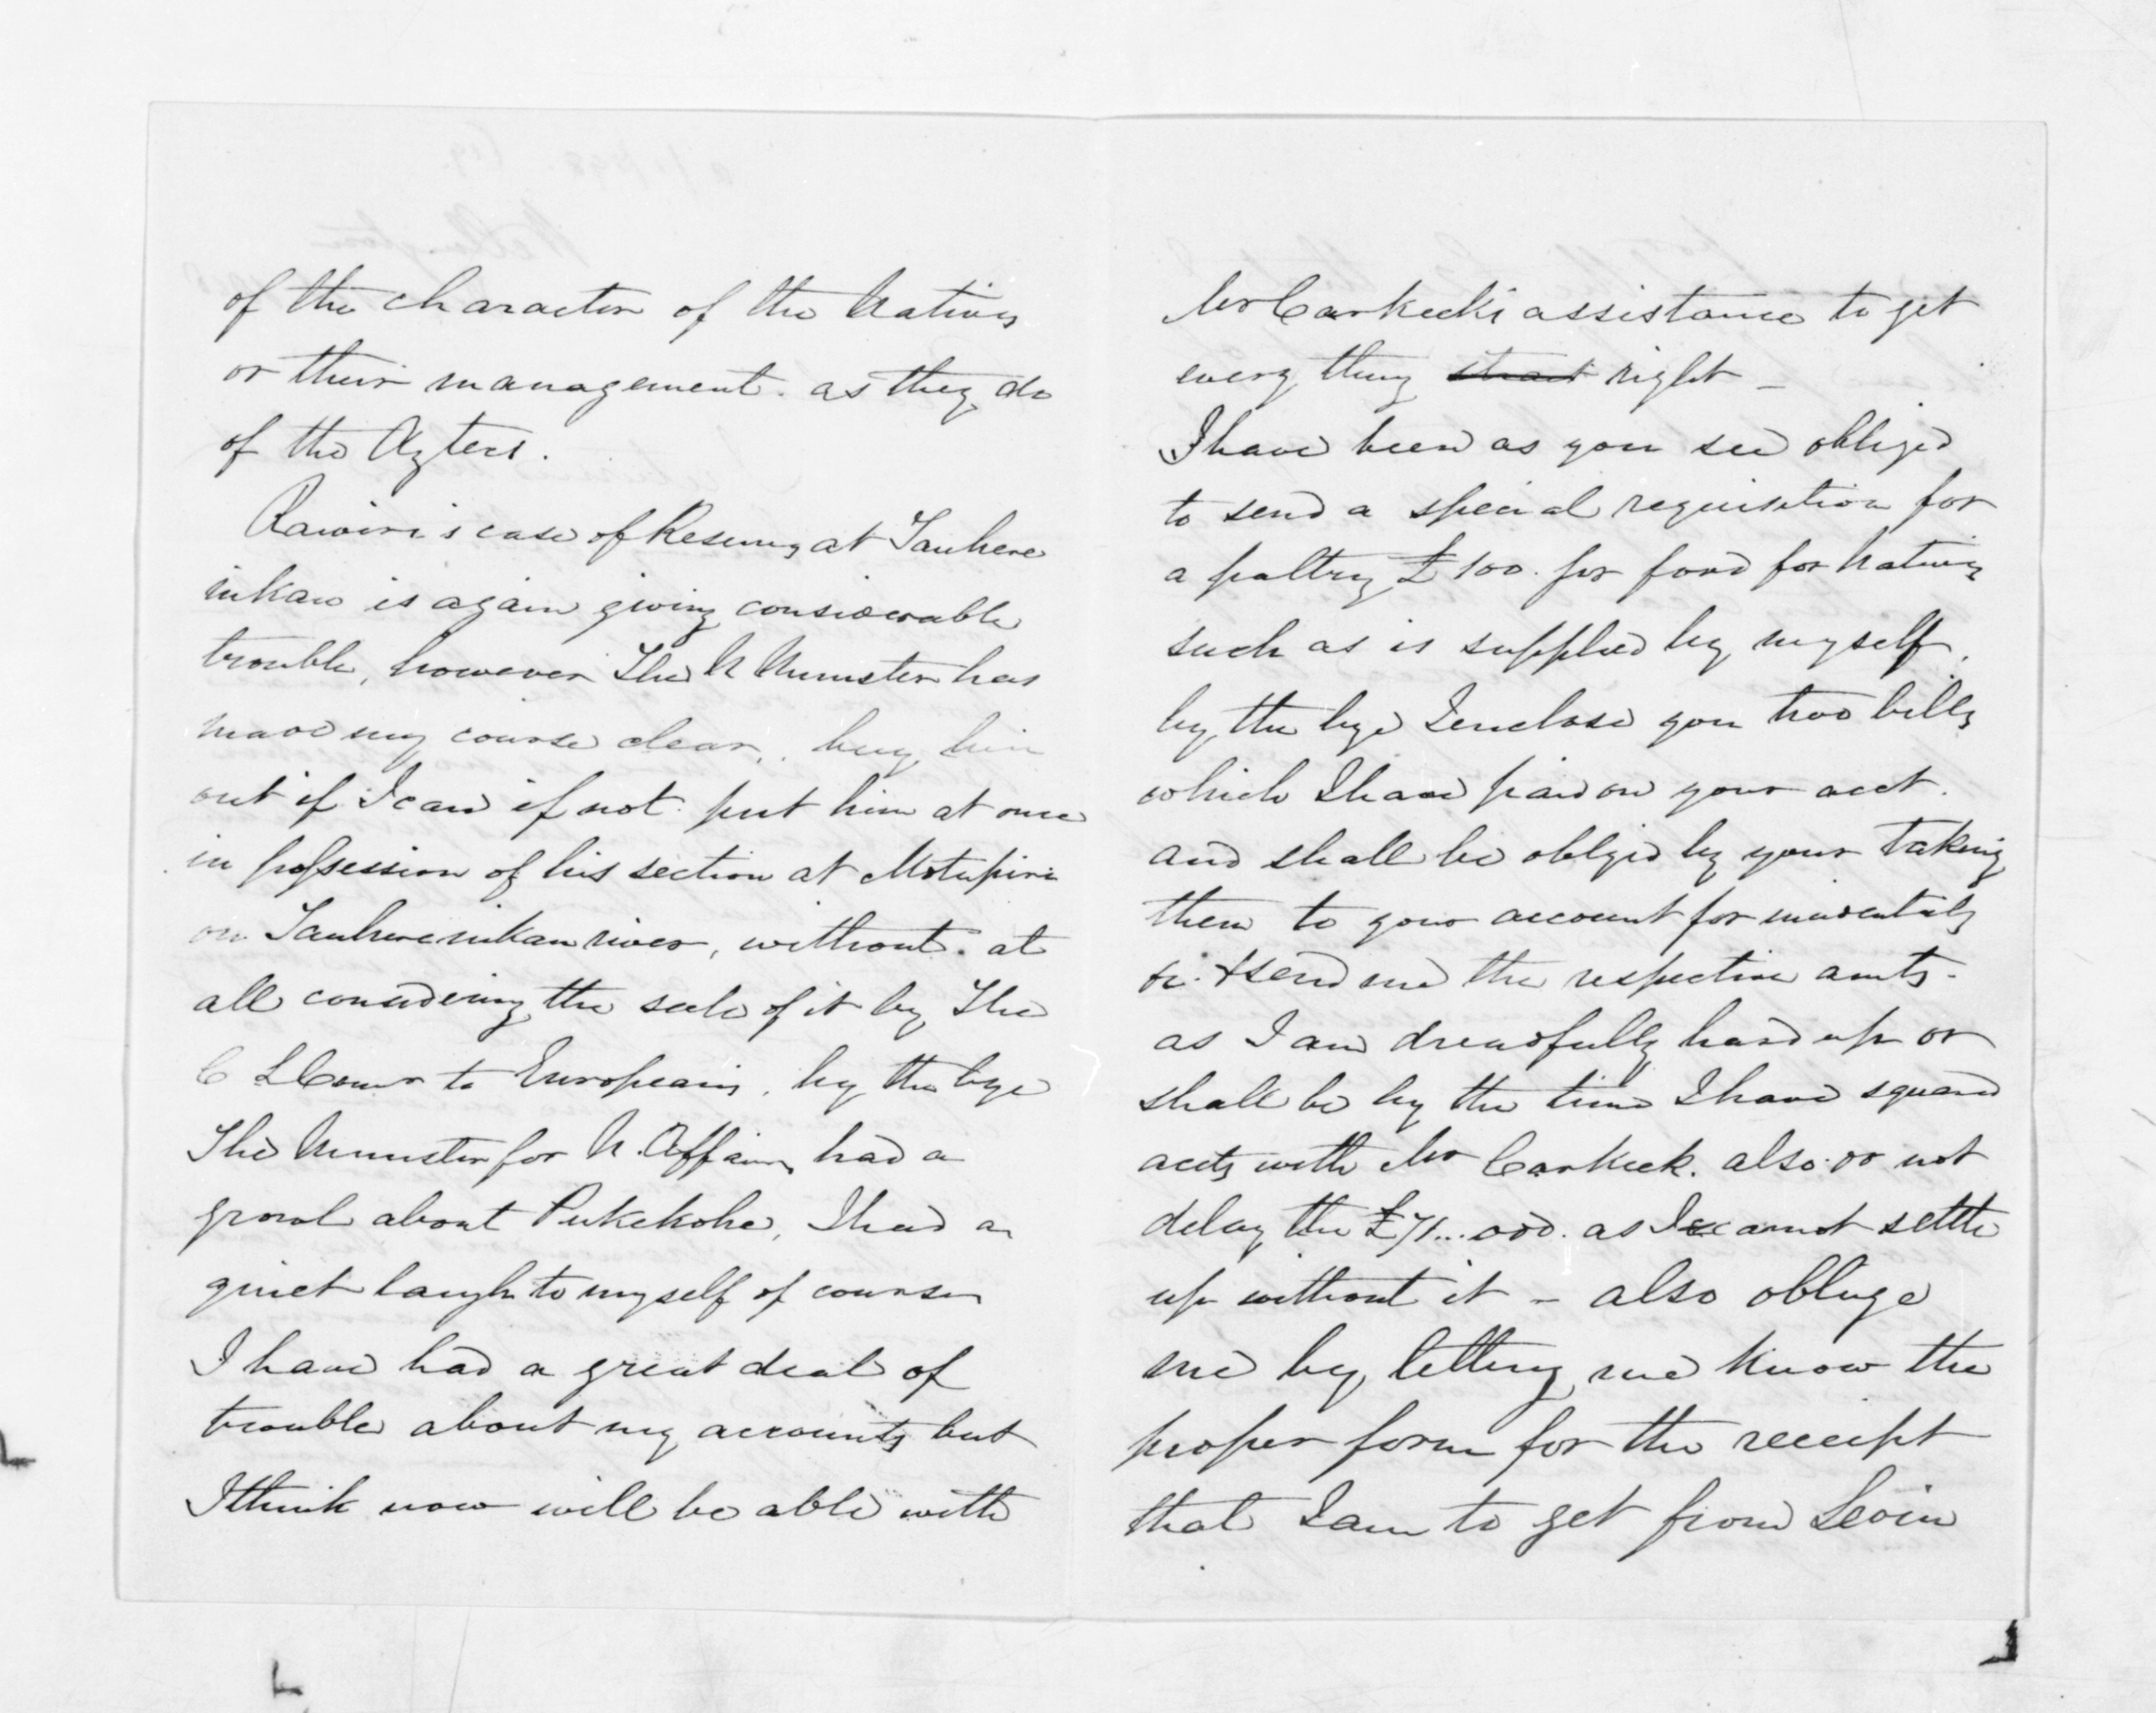 of the character of the Natives
or their management. as they do
of the Aztecs.
Rawiri's case of Reserves at Tauhere
nikau is again giving considerable
trouble, however The N Minister has
made my course clear, buy him
out if I can if not put him at once
in possession of his section at Motupiri
on Tauherenikau river, without. at
all considering the sale of it by The
C L Comr to Europeans. by the bye
The Minister for N. Affairs had a
growl about Pukekohe, I had a
quiet laugh to myself of course
I have had a great deal of
trouble about my accounts but
I think now will be able with
Mr Carkeek's assistance to get
every thing strait right _
I have been as you see obliged
to send a special requisition for
a paltry £100. for food for Natives
such as is supplied by myself.
by the bye I enclose you two bills
which I have paid on your acct.
and shall be obliged by your taking
them to your account for incidentals
&c. & send me the respective amts.
as I am dreadfully hard up or
shall be by the time I have squared
accts with Mr Carkeek. also do not
delay the £71...0.0. as I cannot settle
up without it _ also obluge
me by letting me know the
proper form for the receipt
that I am to get from Levin